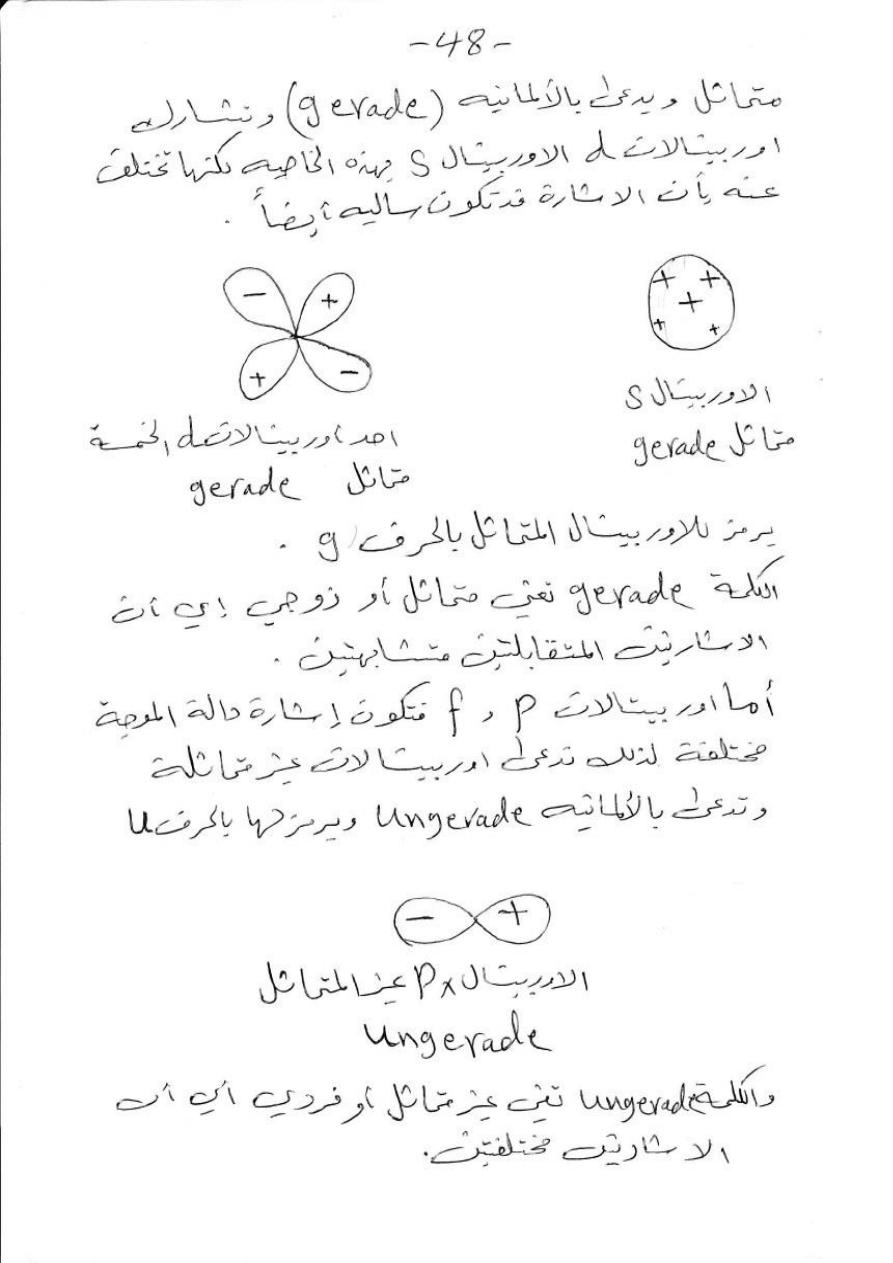 -48-
متماثل ويدعى بالألمانيه (gerade) وتشارك
اوربيتالات d الاوربيتال S بهذه الخاصيه لكنها تختلف
عنه بأن الاشارة قد تكون سالبه أيضاً .
- +
+ -
+ +
+
+ +
الاوربيتال S
متماثل gerade
احد اوربيتالات d الخمسة
متماثل gerade
يرمز للاوربيتال المتماثل بالحرف g .
الكلمة gerade تعني متماثل أو زوجي إي أن
الاشارتين المتقابلتين متشابهتين .
أما اوربيتالات p , f فتكون إشارة دالة الموجة
مختلفة لذلك تدعى اوربيتالات غير متماثلة
وتدعى بالألمانيه Ungerade ويرمز لها بالحرف u
- +
الاوربيتال Px غير المتماثل
Ungerade
والكلمة ungerade تعني غير متماثل أو فردي أي أن
الاشارتين مختلفتين.